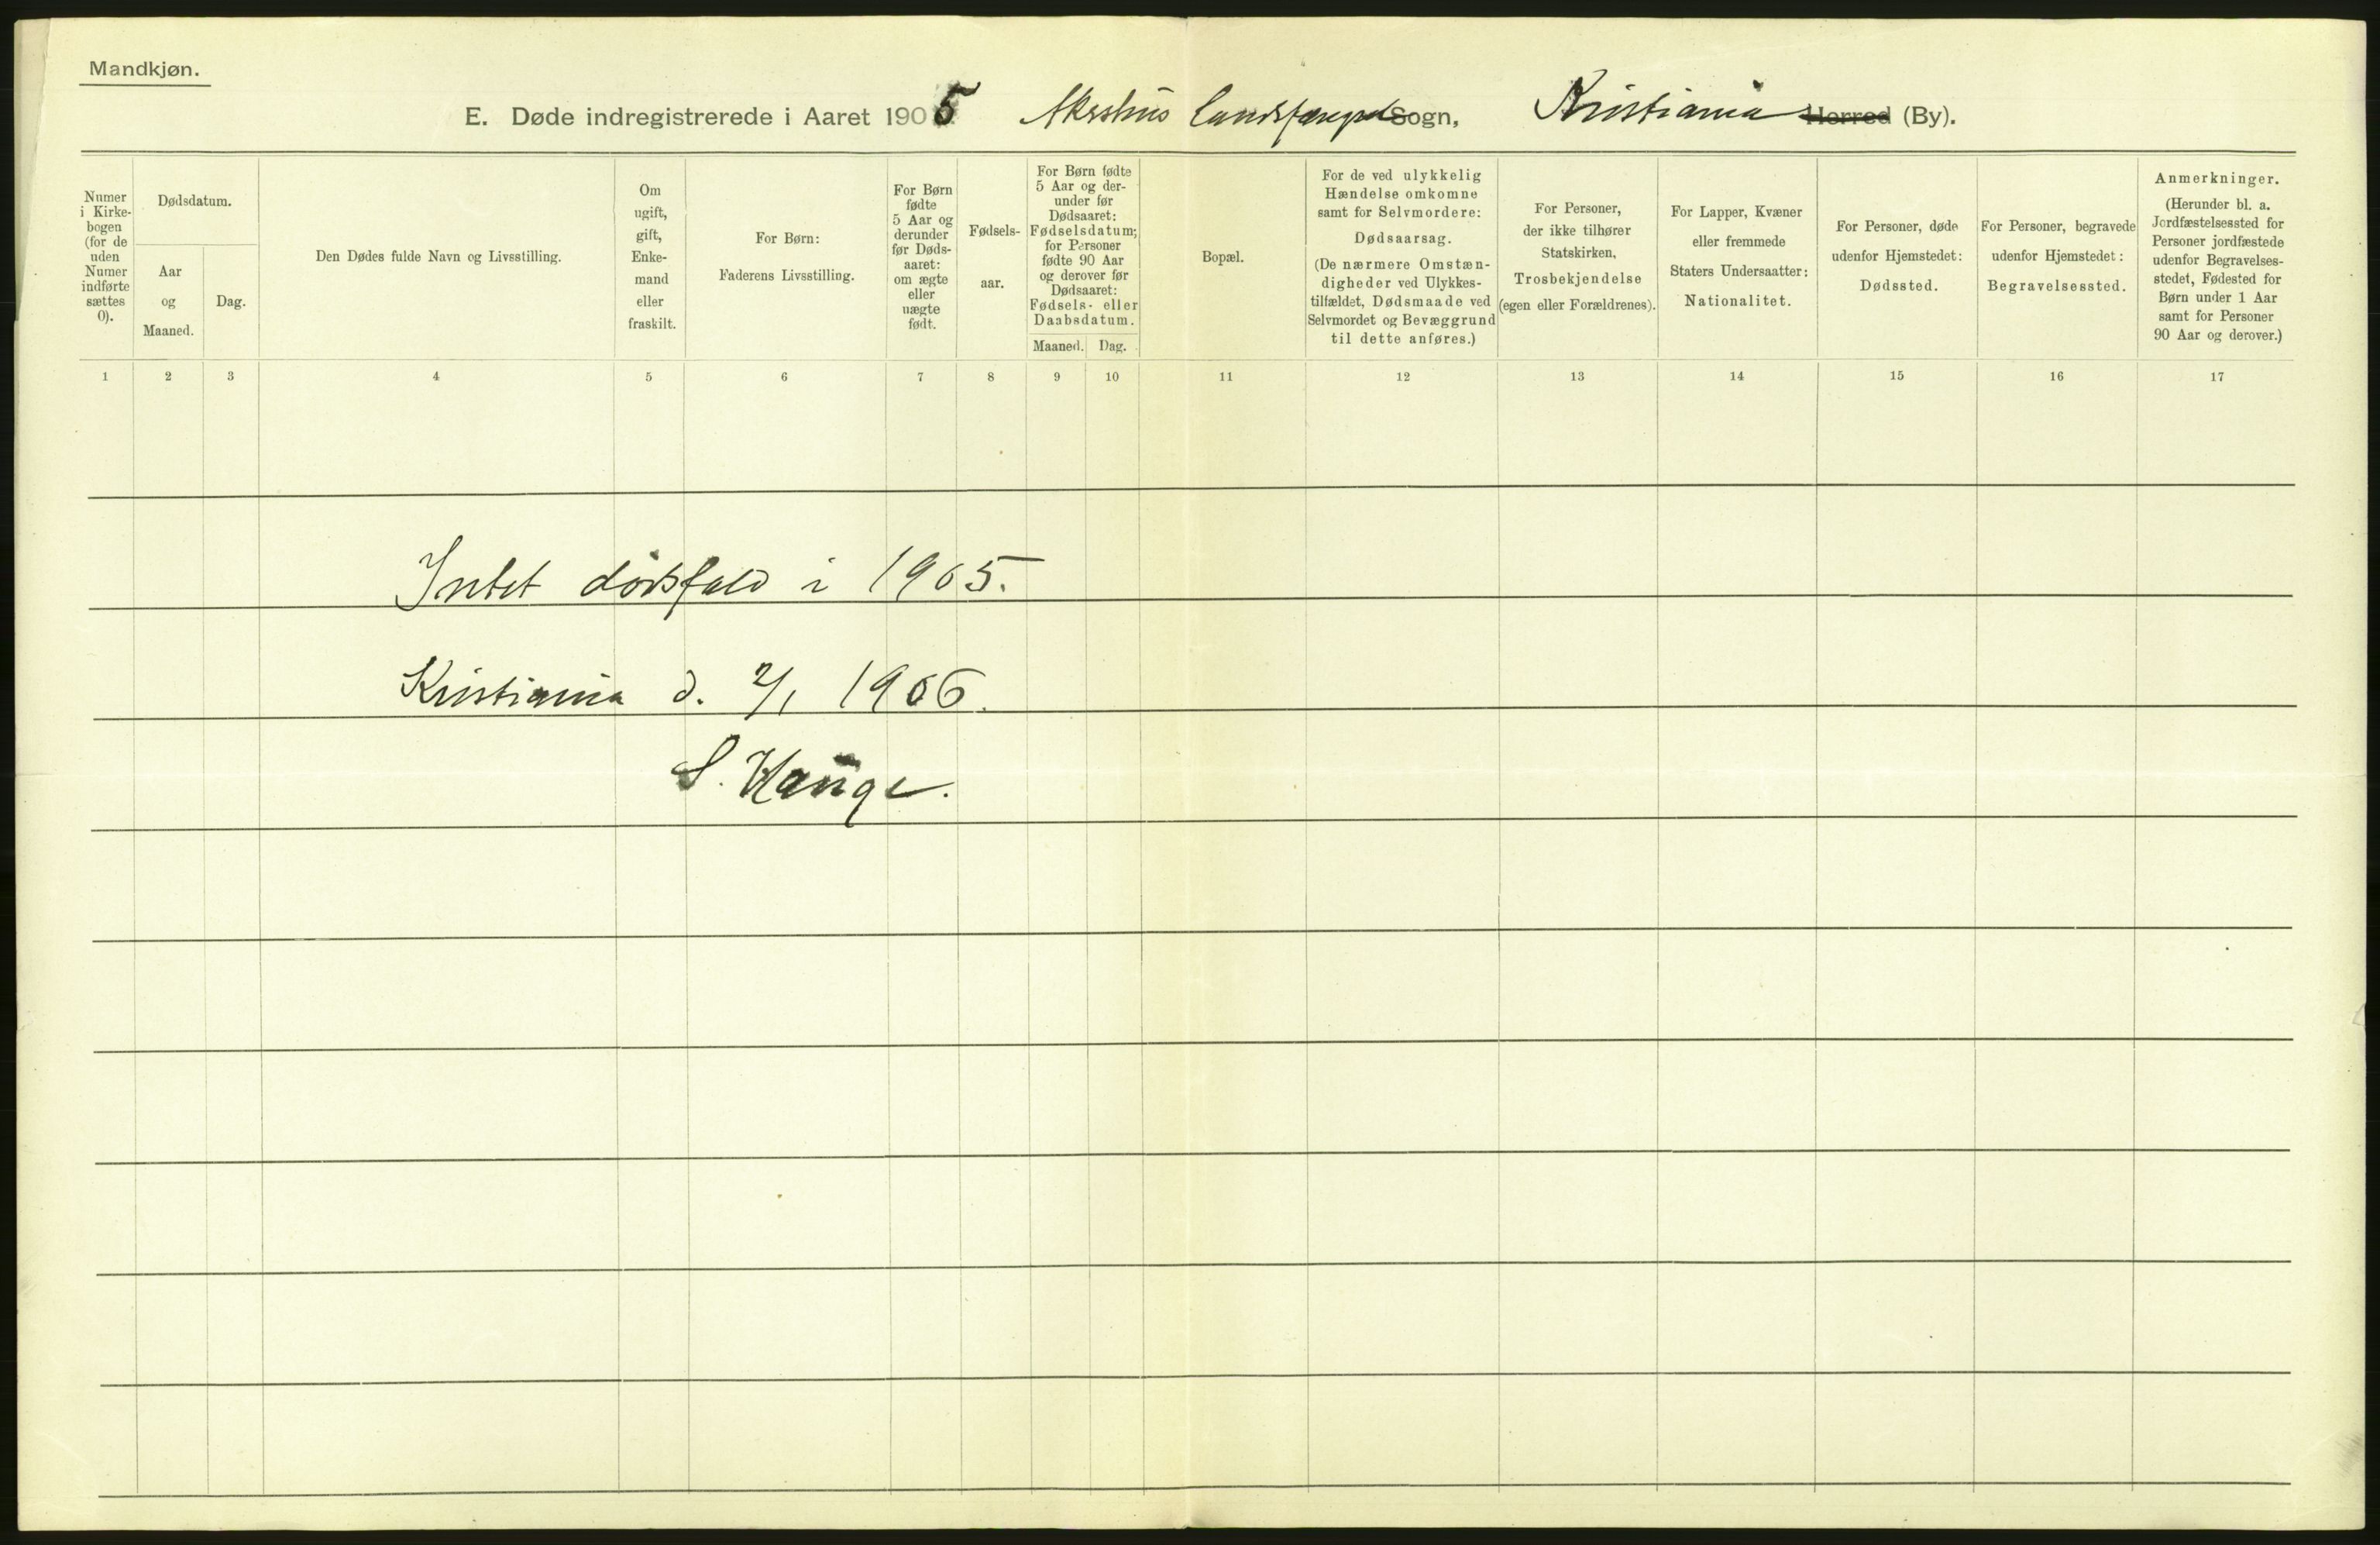 Mandkjøn.
E. Døde indregistrerede i Aaret 1905 Akershus landsfængsel Sogn, Kristiania Herred (By).
Numer
i Kirke-
bogen
(for de
uden
Numer
indførte
sættes
0).
Dødsdatum.
Aar
og
Maaned.
Dag.
Den Dødes fulde Navn og Livsstilling.
Om
ugift,
gift,
Enke-
mand
eller
fraskilt.
For Børn:
Faderens Livsstilling.
For Børn
fødte
5 Aar og
derunder
før Døds-
aaret:
om ægte
eller
uægte
født.
Fødsels-
aar.
For Børn fødte
5 Aar og der-
under før
Dødsaaret:
Fødselsdatum;
for Personer
fødte 90 Aar
og derover før
Dødsaaret:
Fødsels- eller
Daabsdatum.
Maaned. Dag.
Bopæl.
For de ved ulykkelig
Hændelse omkomne
samt for Selvmordere:
Dødsaarsag.
(De nærmere Omstæn-
digheder ved Ulykkes-
tilfældet, Dødsmaade ved
Selvmordet og Bevæggrund
til dette anføres.)
For Personer,
der ikke tilhører
Statskirken,
Trosbekjendelse
(egen eller Forældrenes).
For Lapper, Kvæner
eller fremmede
Staters Undersaatter:
Nationalitet.
For Personer, døde
udenfor Hjemstedet:
Dødssted.
For Personer, begravede
udenfor Hjemstedet:
Begravelsessted.
Anmerkninger.
(Herunder bl. a.
Jordfæstelsessted for
Personer jordfæstede
udenfor Begravelses-
stedet, Fødested for
Børn under 1 Aar
samt for Personer
90 Aar og derover.)
1 2 3 4 5 6 7 8 9 10 11 12 13 14 15 16 17
Intet dødsfald i 1905.
Kristiania d. 2/1 1906.
S. Hauge.